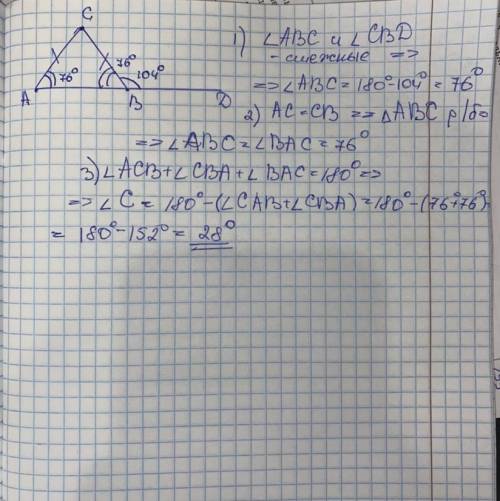 C
76°
76°
104°
A
B
D
1) ∠ABC и ∠CBD
- смежные =>
=> ∠ABC = 180° - 104° = 76°
2) AC = CB => △ABC р/бо
=> ∠ABC = ∠BAC = 76°
3) ∠ACB + ∠CBA + ∠BAC = 180° =>
=> ∠C = 180° - (∠CAB + ∠CBA) = 180° - (76° + 76°) =
= 180° - 152° = 28°